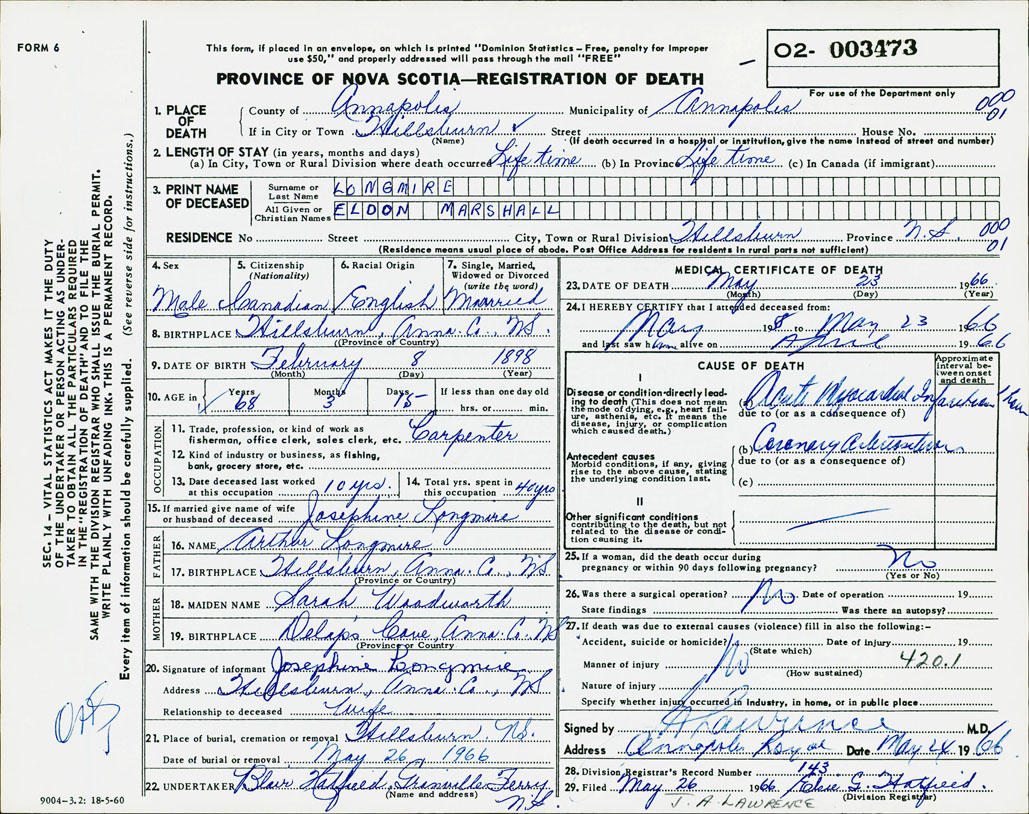 FORM 6
This form, if placed in an envelope, on which is printed "Dominion Statistics – Free, penalty for improper
use $50," and properly addressed will pass through the mail "FREE"
PROVINCE OF NOVA SCOTIA—REGISTRATION OF DEATH
O2- 003473
For use of the Department only
1. PLACE OF DEATH
County of Annapolis Municipality of Annapolis 000
If in City or Town Hillsburn ✓ Street House No. 01
(Name) (If death occurred in a hospital or institution, give the name instead of street and number)
2. LENGTH OF STAY (in years, months and days)
(a) In City, Town or Rural Division where death occurred Life time (b) In Province Life time (c) In Canada (if immigrant)
3. PRINT NAME OF DECEASED
Surname or Last Name LONGMIRE
All Given or Christian Names ELDON MARSHALL
RESIDENCE No Street City, Town or Rural Division Hillsburn Province N.S. 000
01
(Residence means usual place of abode. Post Office Address for residents in rural parts not sufficient)
4. Sex
Male
5. Citizenship (Nationality)
Canadian
6. Racial Origin
English
7. Single, Married, Widowed or Divorced (write the word)
Married
8. BIRTHPLACE Hillsburn, Anna. Co., NS.
(Province or Country)
9. DATE OF BIRTH February 8 1898
(Month) (Day) (Year)
10. AGE in Years 68 Months 3 Days 15 If less than one day old
hrs. or min.
OCCUPATION
11. Trade, profession, or kind of work as
fisherman, office clerk, sales clerk, etc. Carpenter
12. Kind of industry or business, as fishing,
bank, grocery store, etc.
13. Date deceased last worked at this occupation 10 yrs.
14. Total yrs. spent in this occupation 40 yrs
15. If married give name of wife
or husband of deceased Josephine Longmire
FATHER
16. NAME Arthur Longmire
17. BIRTHPLACE Hillsburn, Anna. Co., NS
(Province or Country)
MOTHER
18. MAIDEN NAME Sarah Woodworth
19. BIRTHPLACE Delap's Cove, Anna. Co. NS
(Province or Country)
20. Signature of informant Josephine Longmire
Address Hillsburn, Anna. Co., NS
Relationship to deceased Wife
21. Place of burial, cremation or removal Hillsburn NS.
Date of burial or removal May 26, 1966
22. UNDERTAKER Blair Hatfield, Granville Ferry
(Name and address) N.S.
9004–3.2: 18-5-60
MEDICAL CERTIFICATE OF DEATH
23. DATE OF DEATH May 23 1966
(Month) (Day) (Year)
24. I HEREBY CERTIFY that I attended deceased from:
May 19 to May 23 1966
and last saw him alive on April 1966
CAUSE OF DEATH
Approximate interval between onset and death
I
Disease or condition directly leading to death (This does not mean the mode of dying, e.g., heart failure, asthenia, etc. It means the disease, injury, or complication which caused death.)
(a) Acute Myocardial Infarction
due to (or as a consequence of)
Antecedent causes
Morbid conditions, if any, giving rise to the above cause, stating the underlying condition last.
(b) Coronary
due to (or as a consequence of)
(c)
II
Other significant conditions
contributing to the death, but not related to the disease or condition causing it.
25. If a woman, did the death occur during
pregnancy or within 90 days following pregnancy? No
(Yes or No)
26. Was there a surgical operation? No Date of operation 19
State findings Was there an autopsy?
27. If death was due to external causes (violence) fill in also the following:–
Accident, suicide or homicide? Date of injury 19
(State which)
Manner of injury No 420.1
(How sustained)
Nature of injury
Specify whether injury occurred in Industry, in home, or in public place
Signed by A Lawrence M.D.
Address Annapolis Royal Date May 24 1966
28. Division Registrar's Record Number 143
29. Filed May 26 1966 Elsie G. Hatfield.
(Division Registrar)
J. A. LAWRENCE
SEC. 14 – VITAL STATISTICS ACT MAKES IT THE DUTY
OF THE UNDERTAKER OR PERSON ACTING AS UNDERTAKER
TO OBTAIN ALL THE PARTICULARS REQUIRED
IN THE "REGISTRATION OF DEATH" AND TO FILE THE
SAME WITH THE DIVISION REGISTRAR WHO SHALL ISSUE THE BURIAL PERMIT.
WRITE PLAINLY WITH UNFADING INK. THIS IS A PERMANENT RECORD.
Every item of information should be carefully supplied. (See reverse side for instructions.)